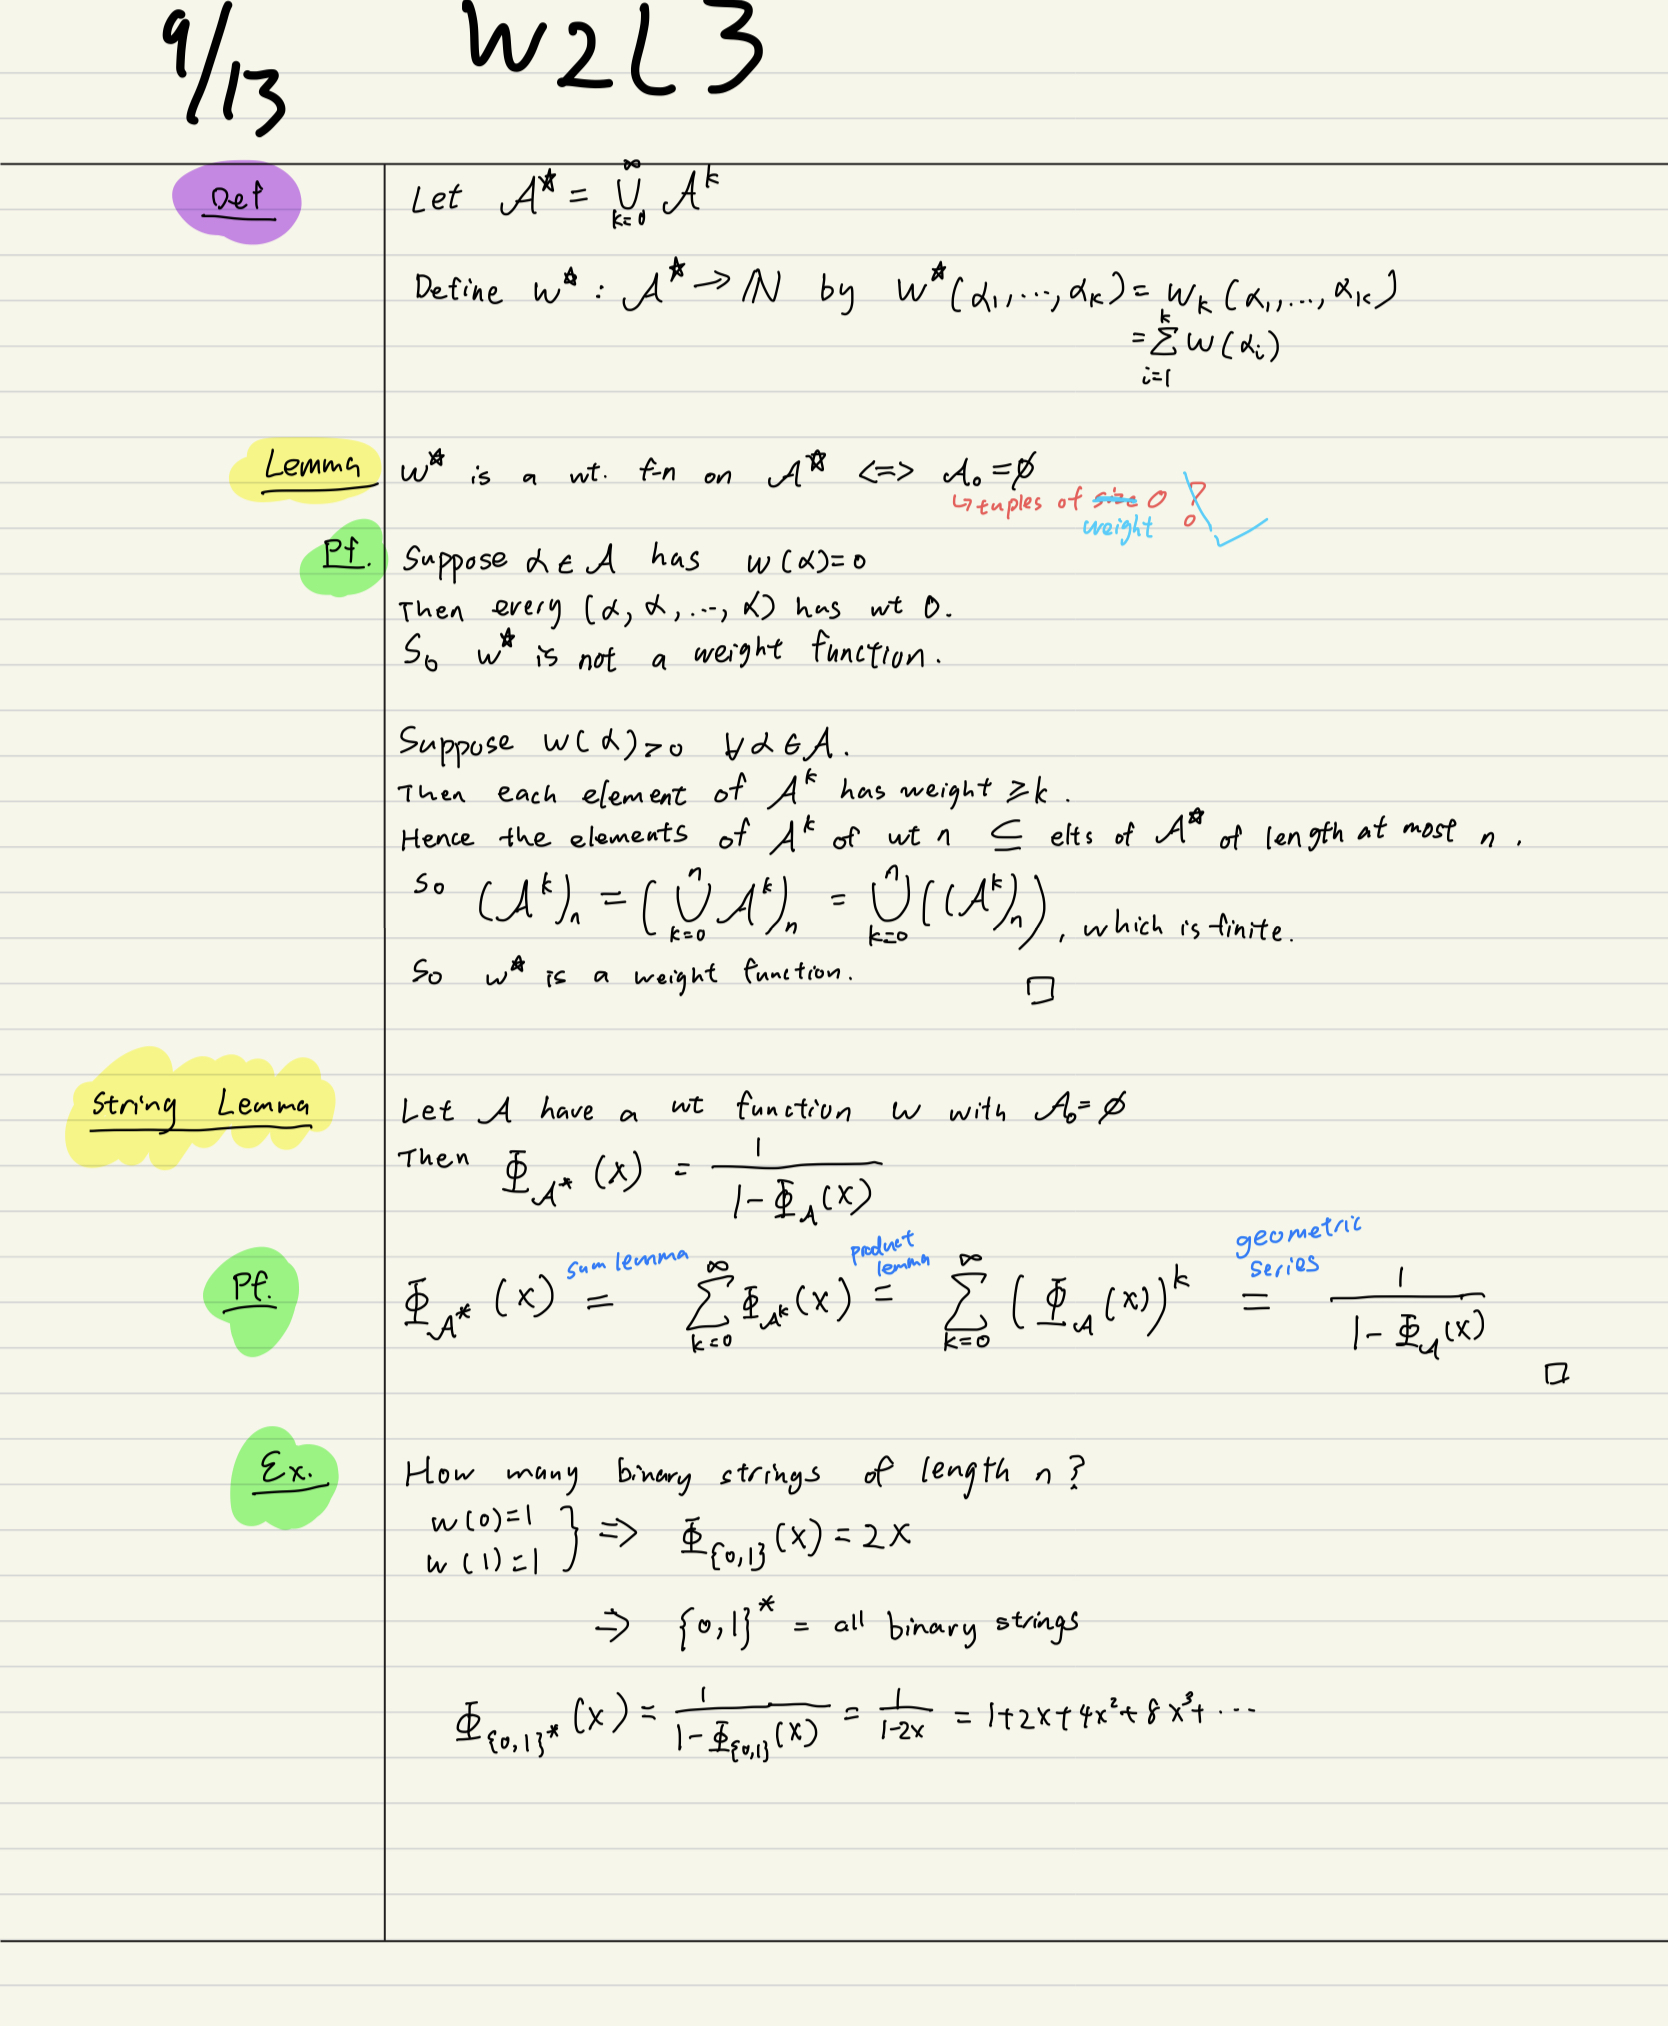 9/13 W2L3
Def Let 𝒜* = ∞⋃k=0 𝒜^k
Define w* : 𝒜* → ℕ by w*(α₁, ..., αₖ) = wₖ(α₁, ..., αₖ)
= k∑i=1 w(αᵢ)
Lemma w* is a wt. f-n on 𝒜* <=> 𝒜₀ = ∅
↳ tuples of size 0 ?
weight ✓
Pf. Suppose α ∈ 𝒜 has w(α)=0
Then every (α, α, ..., α) has wt 0.
So w* is not a weight function.
Suppose w(α)>0 ∀α∈𝒜.
Then each element of 𝒜^k has weight ≥k.
Hence the elements of 𝒜^k of wt n ⊆ elts of 𝒜* of length at most n.
So (𝒜^k)ₙ = (n⋃k=0 𝒜^k)ₙ = n⋃k=0((𝒜^k)ₙ), which is finite.
So w* is a weight function. □
String Lemma Let 𝒜 have a wt function w with 𝒜₀=∅
Then Φ_𝒜*(x) = 1/(1-Φ_𝒜(x))
sum lemma product lemma geometric series
Pf. Φ_𝒜*(x) = ∞∑k=0 Φ_𝒜^k(x) = ∞∑k=0 (Φ_𝒜(x))^k = 1/(1-Φ_𝒜(x))
□
Ex. How many binary strings of length n?
w(0)=1
w(1)=1 } => Φ_{0,1}(x) = 2x
=> {0,1}* = all binary strings
Φ_{0,1}*(x) = 1/(1-Φ_{0,1}(x)) = 1/(1-2x) = 1+2x+4x²+8x³+ ...